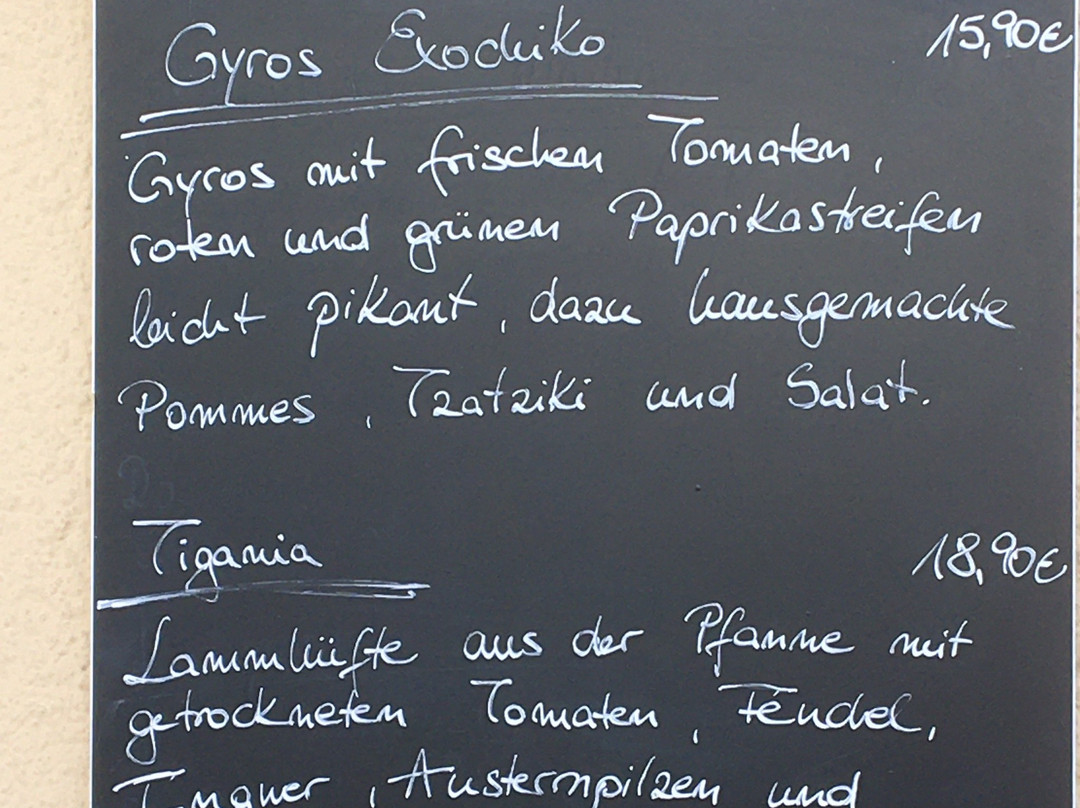 Gyros Exochiko 15,90€
Gyros mit frischen Tomaten,
roten und grünen Paprikastreifen
leicht pikant, dazu hausgemachte
Pommes, Tzatziki und Salat.
Tigania 18,90€
Lammhüfte aus der Pfanne mit
getrockneten Tomaten, Fenchel,
Ingwer, Austernpilzen und